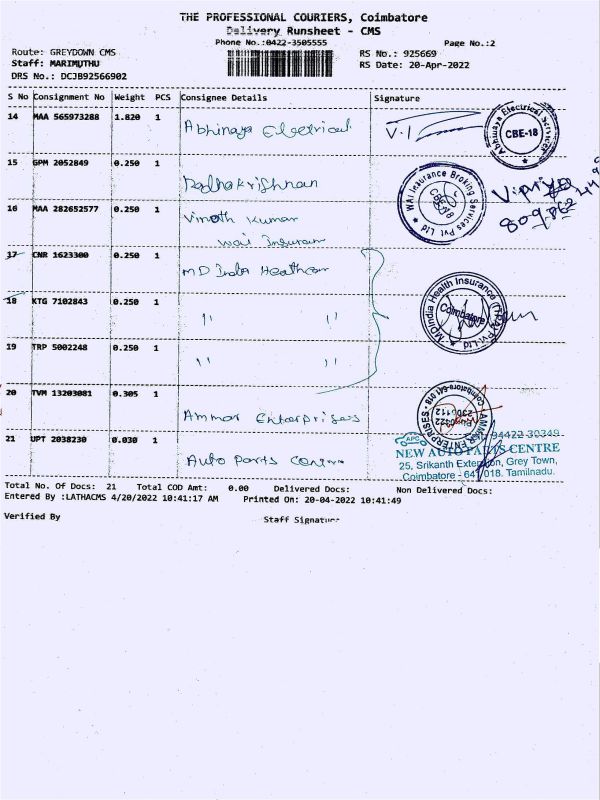 THE PROFESSIONAL COURIERS, Coimbatore
Delivery Runsheet - CMS
Phone No.:0422-3505555
Page No.:2
Route: GREYDOWN CMS
RS No.: 925669
Staff: MARIMUTHU
RS Date: 20-Apr-2022
DRS No.: DCJB92566902
S No Consignment No Weight PCS Consignee Details Signature
14 MAA 565973288 1.820 1 Abhinaya Electrical V.1
Abhinaya Electrical Services CBE-18
15 GPM 2052849 0.250 1 Radhakrishnan
WAI Insurance Broking Services Pvt Ltd
16 MAA 282652577 0.250 1 Vinoth Kumar
Wai Insuran
17 CNR 1623300 0.250 1 MD India Heathcar
18 KTG 7102843 0.250 1 " "
MDIndia Health Insurance (TPA) Pvt.Ltd Coimbatore
19 TRP 5002248 0.250 1 " "
20 TVM 13203081 0.305 1 Ammar Enterprises
AMMAR ENTERPRISES Coimbatore-641 018
21 UPT 2038230 0.030 1 Auto Parts Centre
APC 94422 30349
NEW AUTO PARTS CENTRE
25, Srikanth Extention, Grey Town,
Coimbatore - 641 018. Tamilnadu.
Total No. Of Docs: 21 Total COD Amt: 0.00 Delivered Docs: Non Delivered Docs:
Entered By :LATHACMS 4/20/2022 10:41:17 AM Printed On: 20-04-2022 10:41:49
Verified By Staff Signature